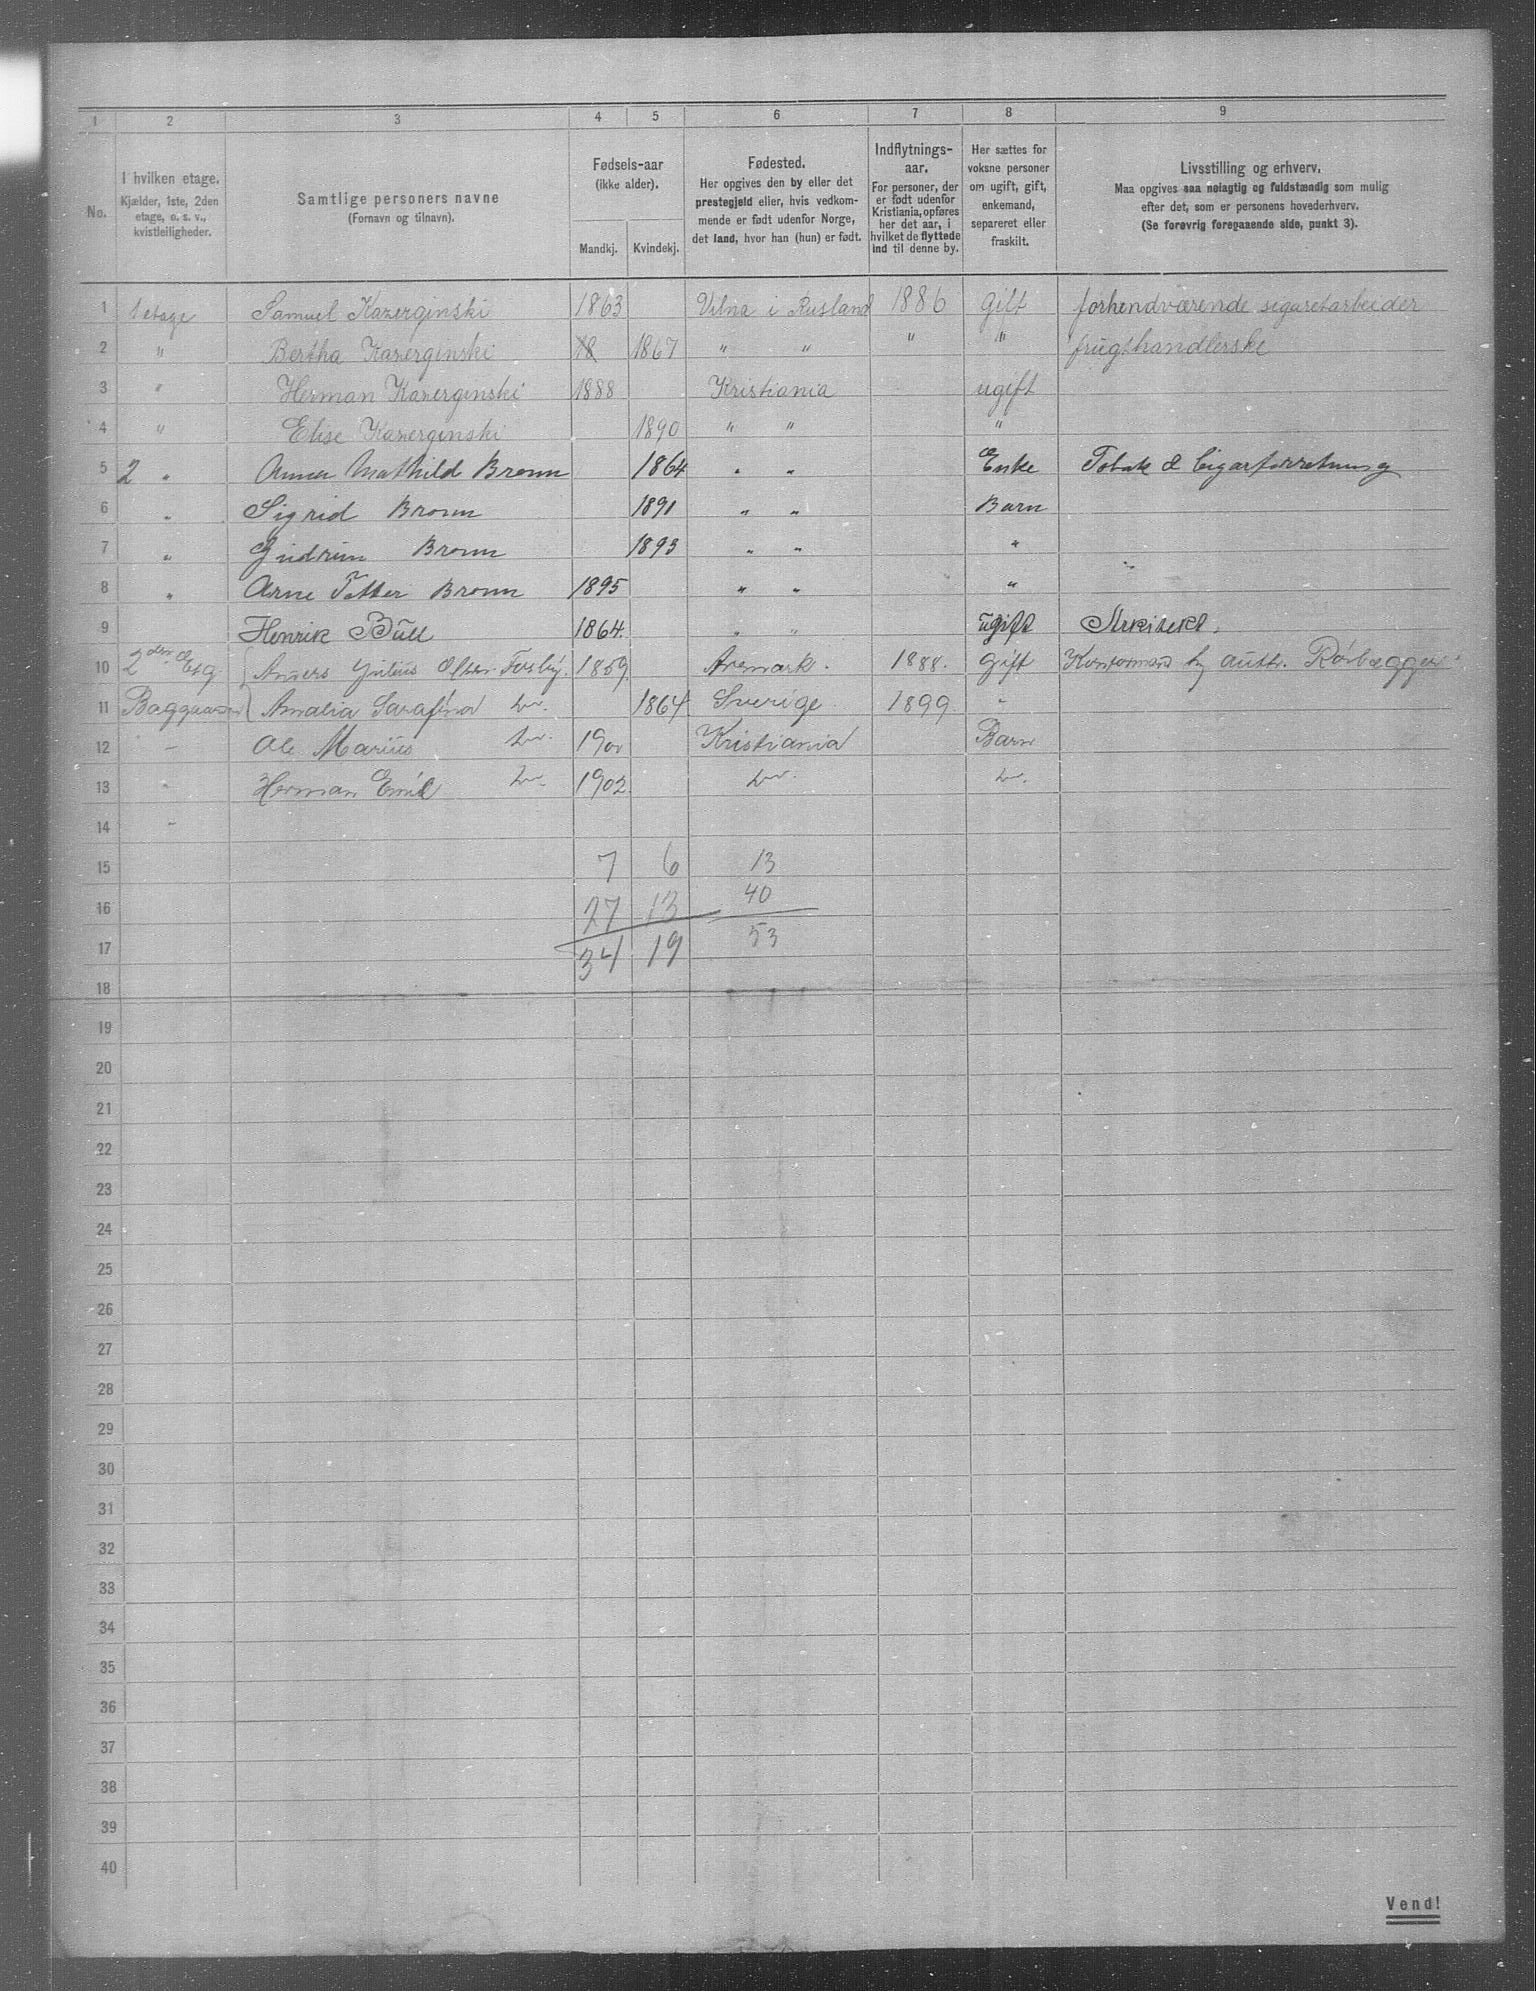 1 2 3 4 5 6 7 8 9
No.
I hvilken etage.
Kjælder, 1ste, 2den
etage, o. s. v.,
kvistleiligheder.
Samtlige personers navne
(Fornavn og tilnavn).
Fødsels-aar
(ikke alder).
Mandkj. Kvindekj.
Fødested.
Her opgives den by eller det
prestegjeld eller, hvis vedkom-
mende er født udenfor Norge,
det land, hvor han (hun) er født.
Indflytnings-
aar.
For personer, der
er født udenfor
Kristiania, opføres
her det aar, i
hvilket de flyttede
ind til denne by.
Her sættes for
voksne personer
om ugift, gift,
enkemand,
separeret eller
fraskilt.
Livsstilling og erhverv.
Maa opgives saa nøiagtig og fuldstændig som mulig
efter det, som er personens hovederhverv.
(Se forøvrig foregaaende side, punkt 3).
1 1 etage Samuel Kazerginski 1863 Vilna i Rusland 1886 Gift forhendværende sigaretarbeider
2 " Bertha Kazerginski 18 1867 " " " " frugthandlerske
3 " Herman Kazerginski 1888 Kristiania ugift
4 " Elise Kazerginski 1890 " " "
5 2 " Anna Mathild Bronn 1864 " " Enke Tobak & Cigarforretning
6 " Sigrid Bronn 1891 " " Barn
7 " Gudrun Bronn 1893 " " "
8 " Arne Bronn 1895 " " "
9 Henrik Bull 1864 " " ugift Arkitekt.
10 2den Etg Anders Julius Olsen Forsby. 1859 Aremark. 1888. Gift Rørlægger
11 Amalia Sarafina do. 1864 Sverige. 1899. "
12 " Ole Marius do. 1900 Kristiania Barn
13 " Herman Emil do. 1902 do. do.
14 "
15 7 6 13
16 27 13 40
17 34 19 53
18
19
20
21
22
23
24
25
26
27
28
29
30
31
32
33
34
35
36
37
38
39
40
Vend!